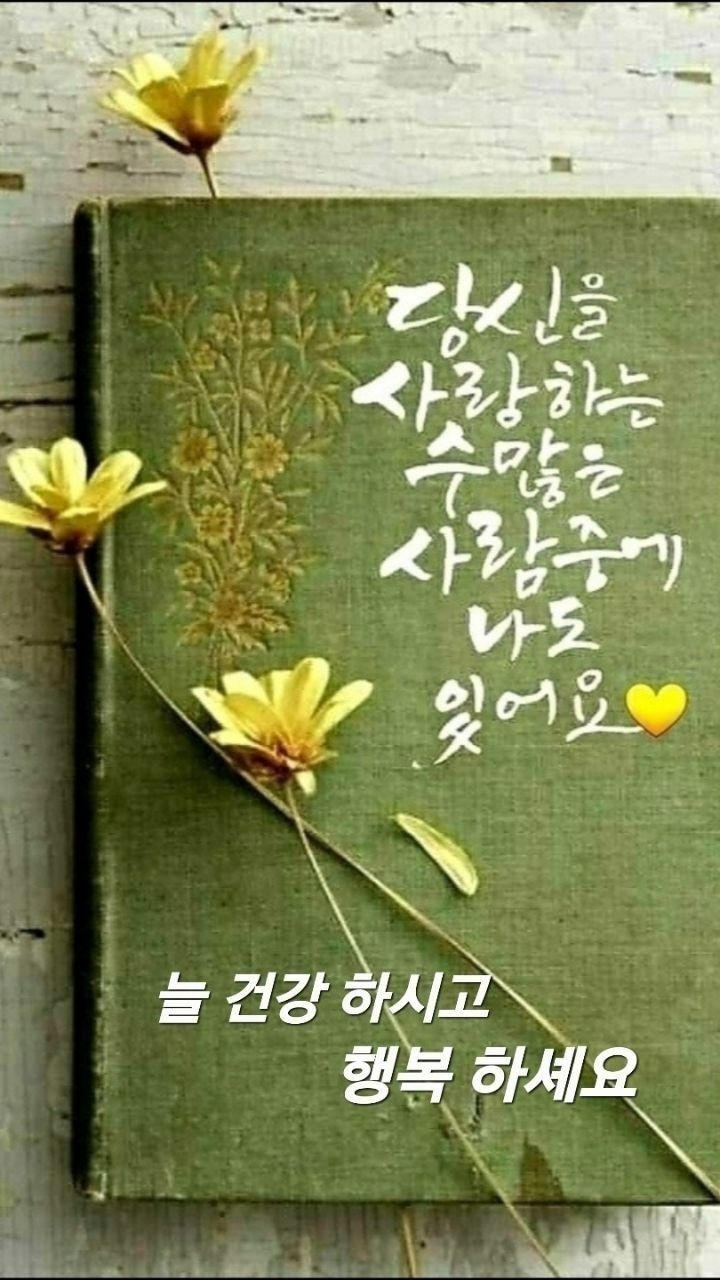 당신을
사랑하는
수많은
사람중에
나도
있어요💛
늘 건강 하시고
행복 하세요